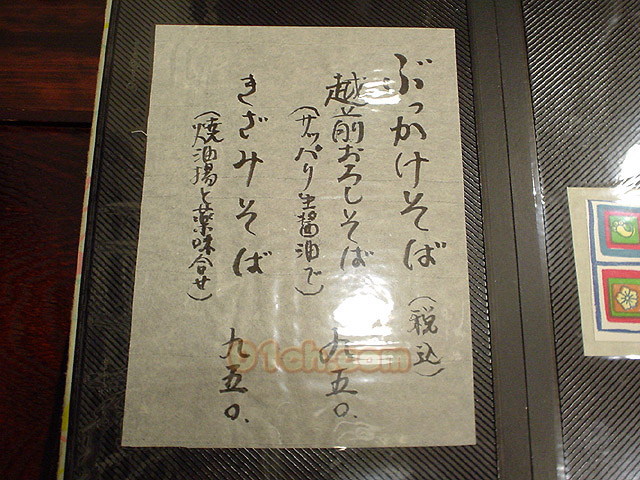 ぶっかけそば(税込)
越前おろしそば 五〇.
(サッパリ生醤油で)
きざみそば 九五〇.
(焼油揚と薬味合せ)
91ch.com